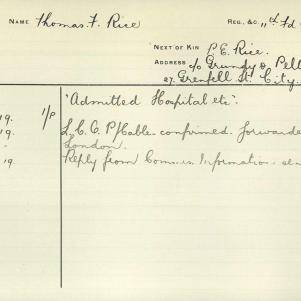 NAME Thomas F. Rice REG., &C. 11th Fd
NEXT OF KIN P. E. Rice.
ADDRESS c/o Grundy & Pell
27. Grenfell St. City.
"Admitted Hospital etc".
19. 1/P L.C.O. P/Cable confirmed. forwarde
19.
London.
19 Reply from Commn Information